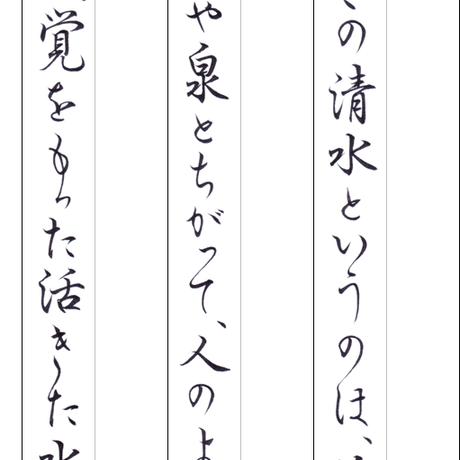 の清水というのは、
や泉とちがって、人のよ
覚をもった活きた水